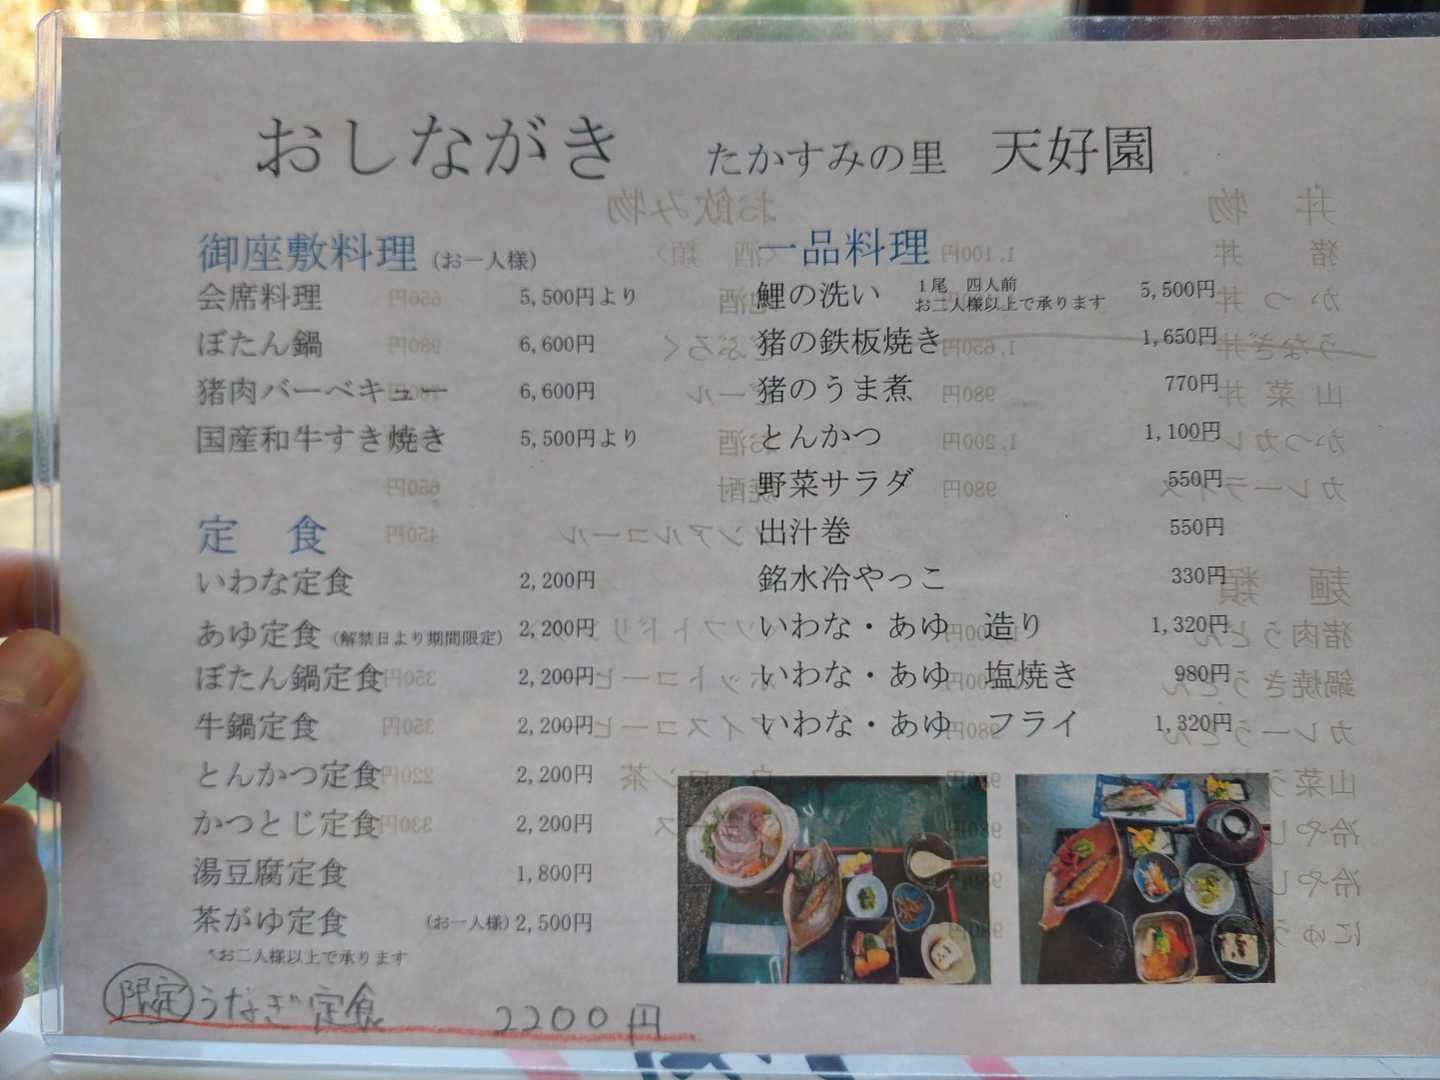 おしながき　たかすみの里　天好園
御座敷料理 (お一人様)
会席料理 5,500円より
ぼたん鍋 6,600円
猪肉バーベキュー 6,600円
国産和牛すき焼き 5,500円より
定　食
いわな定食 2,200円
あゆ定食 (解禁日より期間限定) 2,200円
ぼたん鍋定食 2,200円
牛鍋定食 2,200円
とんかつ定食 2,200円
かつとじ定食 2,200円
湯豆腐定食 1,800円
茶がゆ定食 (お一人様) 2,500円
*お二人様以上で承ります
限定 うなぎ定食 2200円
一品料理
鯉の洗い 1尾　四人前 5,500円
お二人様以上で承ります
猪の鉄板焼き 1,650円
猪のうま煮 770円
とんかつ 1,100円
野菜サラダ 550円
出汁巻 550円
銘水冷やっこ 330円
いわな・あゆ　造り 1,320円
いわな・あゆ　塩焼き 980円
いわな・あゆ　フライ 1,320円